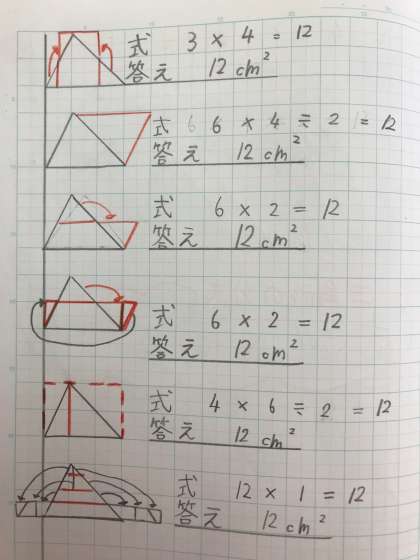 式 3 × 4 = 12
答え 12 cm²
式 6 6 × 4 ÷ 2 = 12
答え 12 cm²
式 6 × 2 = 12
答え 12 cm²
式 6 × 2 = 12
答え 12 cm²
式 4 × 6 ÷ 2 = 12
答え 12 cm²
式 12 × 1 = 12
答え 12 cm²